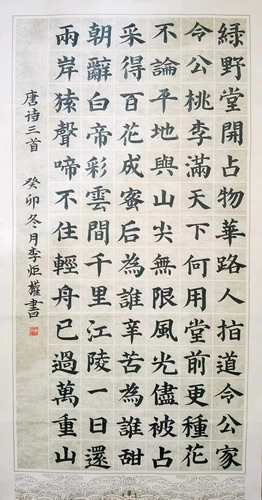 綠野堂開占物華路人指道令公家
令公桃李滿天下何用堂前更種花
不論平地與山尖無限風光儘被占
采得百花成蜜后為誰辛苦為誰甜
朝辭白帝彩雲間千里江陵一日還
兩岸猿聲啼不住輕舟已過萬重山
唐诗三首 癸卯冬月李炬書